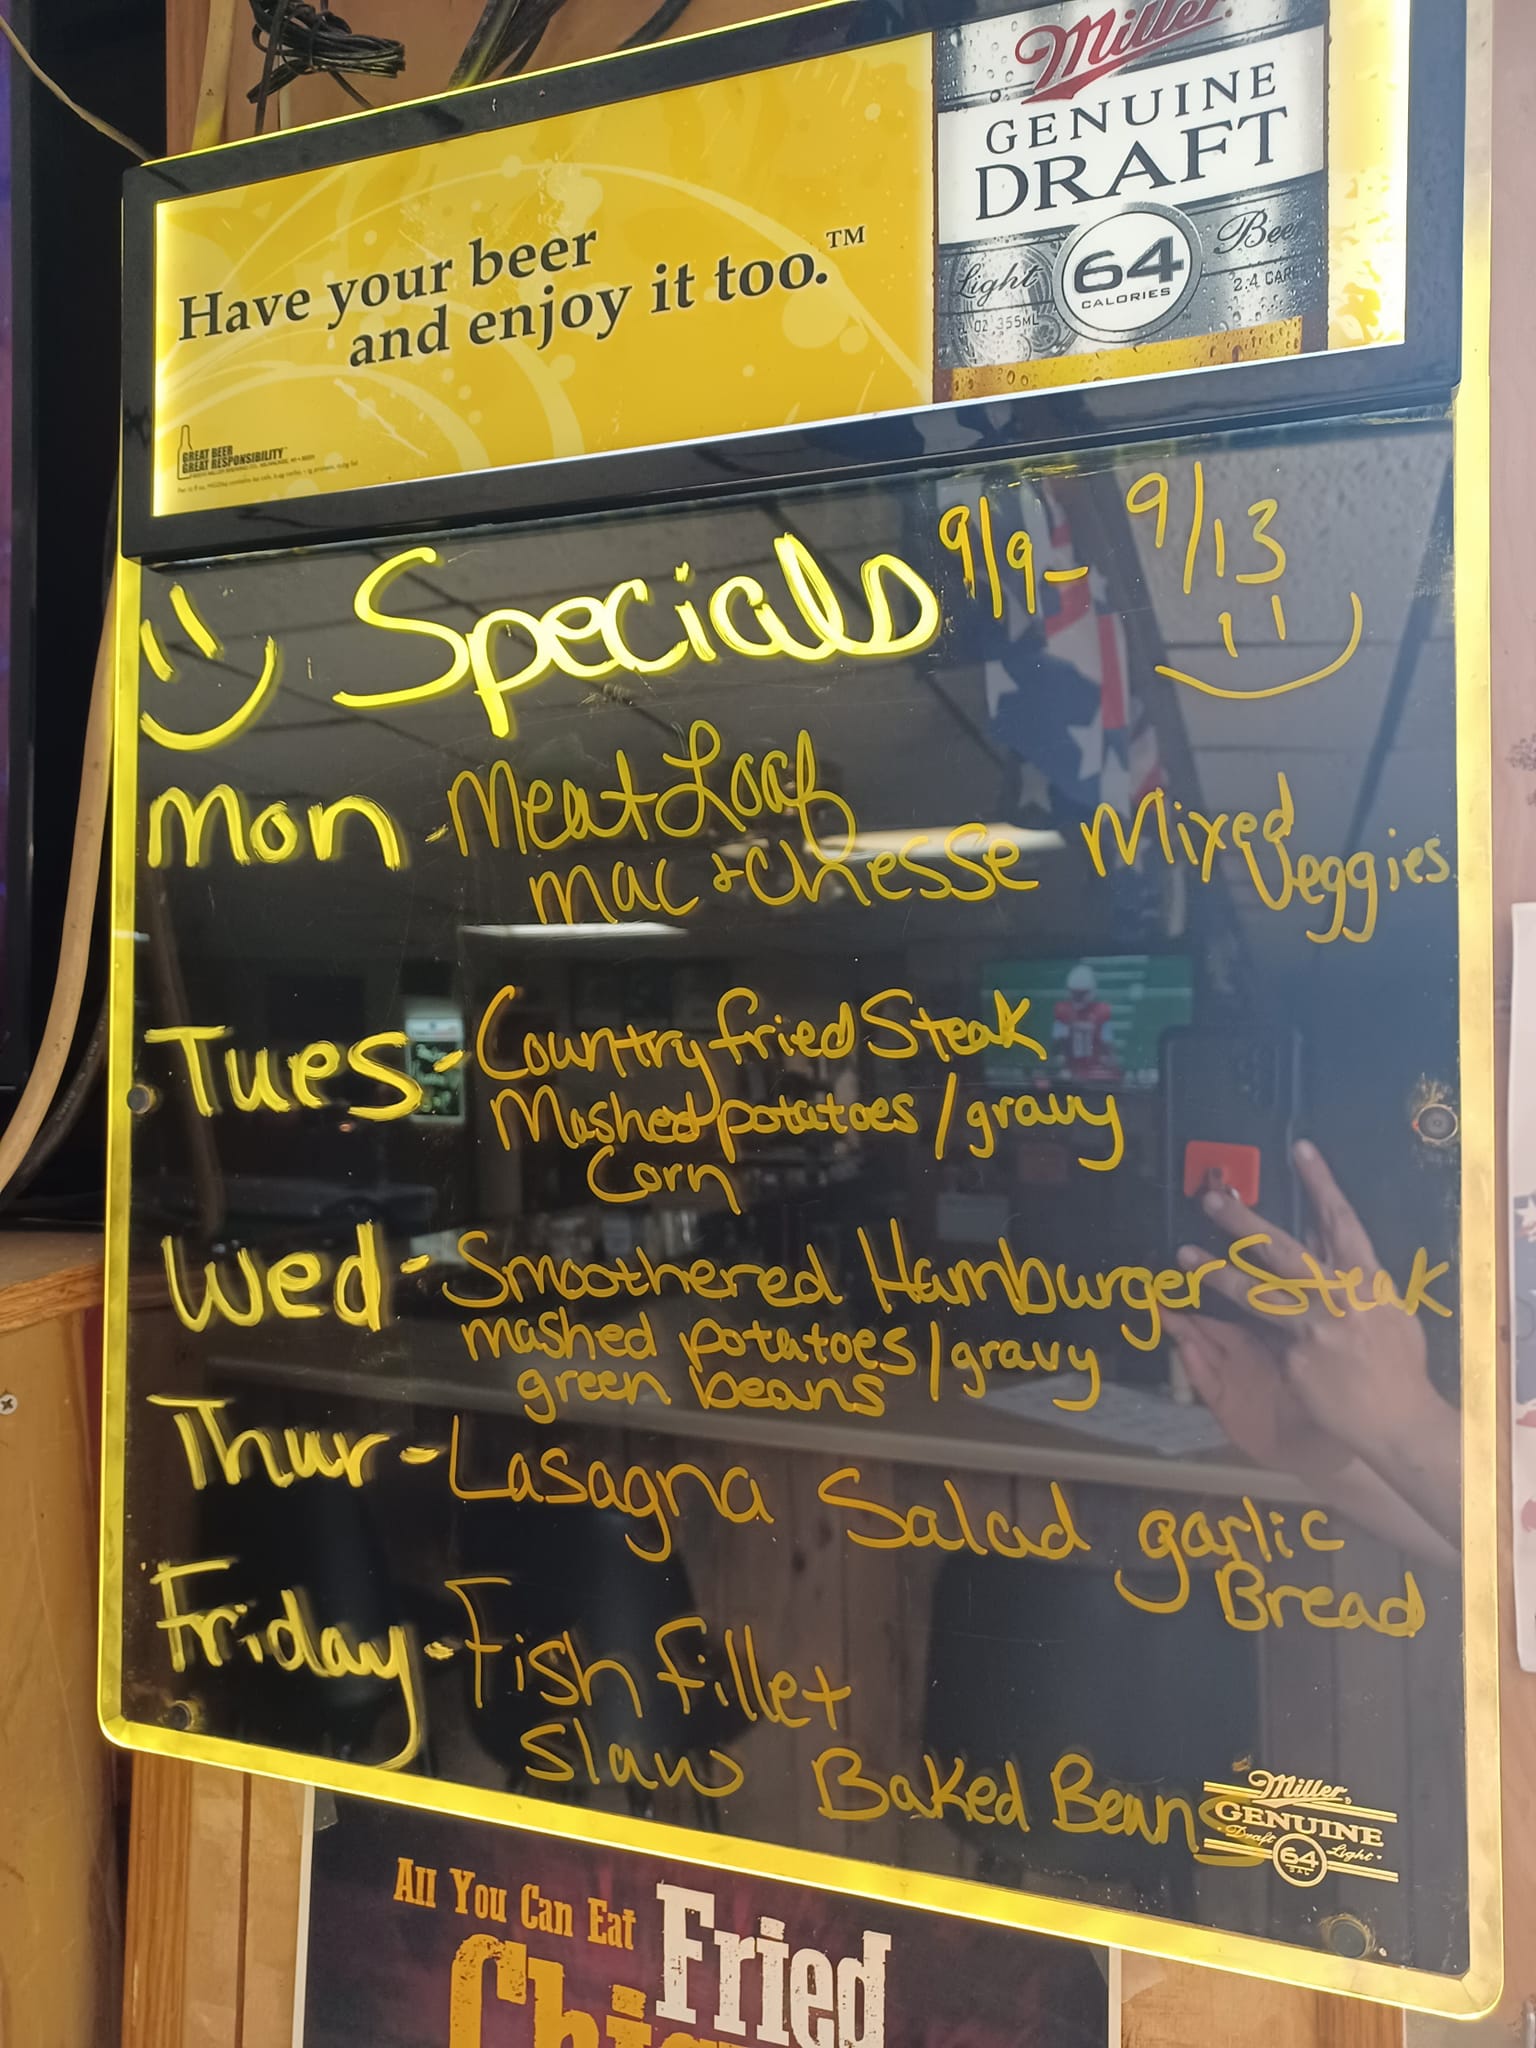 Miller
GENUINE
DRAFT
Light
64
CALORIES
355ML
Have your beer
and enjoy it too.™
GREAT BEER
GREAT RESPONSIBILITY
Specials 9/9- 9/13
Mon - Meat Loaf
Mac + Chesse Mixed
Veggies
Tues - Country fried Steak
Mashed potatoes / gravy
Corn
Wed - Smoothered Hamburger Steak
mashed potatoes / gravy
green beans
Thur - Lasagna Salad garlic
Bread
Friday - Fish fillet
Slaw Baked Beans
Miller
GENUINE
Draft Light
64
All You Can Eat
Fried